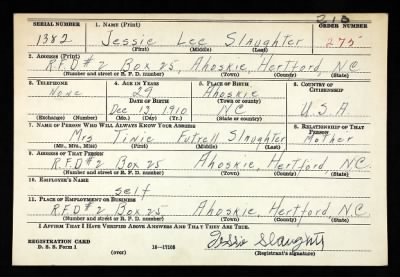 SERIAL NUMBER 1. NAME (Print) ORDER NUMBER
1382 Jessie Lee Slaughter 275
(First) (Middle) (Last)
2. ADDRESS (Print)
R.F.D #2 Box 25, Ahoskie, Hertford, N.C.
(Number and street or R. F. D. number) (Town) (County) (State)
3. TELEPHONE 4. AGE IN YEARS 5. PLACE OF BIRTH 6. COUNTRY OF CITIZENSHIP
None 29 Ahoskie
DATE OF BIRTH (Town or county)
Dec 19, 1910 NC U.S.A
(Exchange) (Number) (Mo.) (Day) (Yr.) (State or country)
7. NAME OF PERSON WHO WILL ALWAYS KNOW YOUR ADDRESS 8. RELATIONSHIP OF THAT PERSON
Mrs Slaughter Mother
(Mr., Mrs., Miss) (First) (Middle) (Last)
9. ADDRESS OF THAT PERSON
R.F.D #2 Box 25 Ahoskie, Hertford N.C.
(Number and street or R. F. D. number) (Town) (County) (State)
10. EMPLOYER'S NAME
self
11. PLACE OF EMPLOYMENT OR BUSINESS
R.F.D #2 Box 25, Ahoskie, Hertford, N.C.
(Number and street or R. F. D. number) (Town) (County) (State)
I AFFIRM THAT I HAVE VERIFIED ABOVE ANSWERS AND THAT THEY ARE TRUE.
REGISTRATION CARD
D. S. S. Form 1 16—17105
(over) (Registrant's signature)